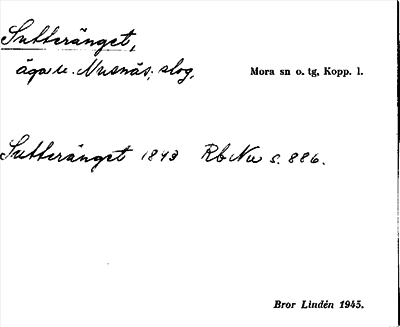 Sutteränget,
ägor u. Nusnäs, slog. Mora sn o. tg, Kopp. l.
Sutteränget 1843 Rb Nu s. 886.
Bror Lindén 1945.